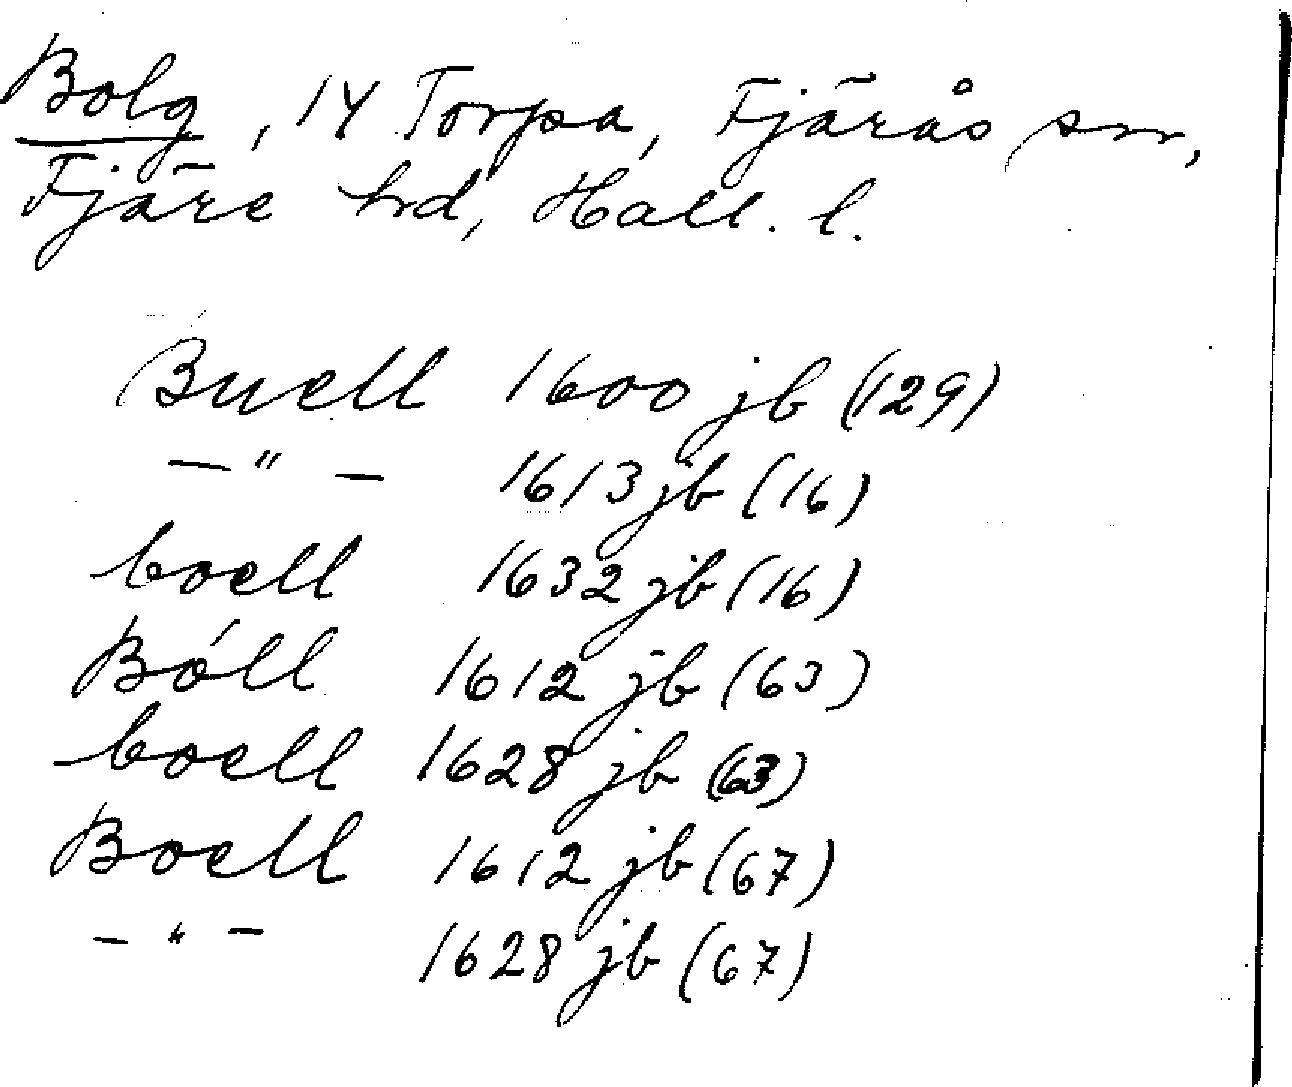 Bolg, 14 Torpa, Fjärås sn,
Fjäre hd, Hall. l.
Buell 1600 jb (129)
—"— 1613 jb (16)
boell 1632 jb (16)
Bóll 1612 jb (63)
boell 1628 jb (63)
Boell 1612 jb (67)
—"— 1628 jb (67)